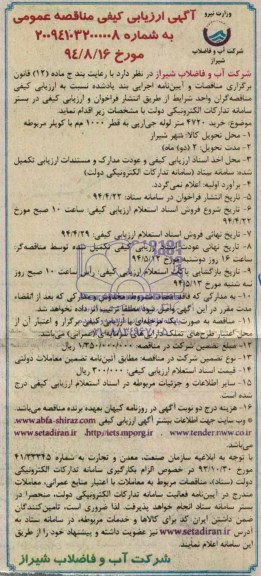 وزارت نیرو
شرکت آب و فاضلاب شیراز
آگهی ارزیابی کیفی مناقصه عمومی
به شماره ۲۰۰۹۴۱۰۳۲۰۰۰۰۰۸
مورخ ۹۴/۸/۱۶
شرکت آب و فاضلاب شیراز در نظر دارد با رعایت بند ج ماده (۱۲) قانون
برگزاری مناقصات و آیین‌نامه اجرایی بند یادشده نسبت به ارزیابی کیفی
مناقصه‌گران واجد شرایط از طریق انتشار فراخوان و ارزیابی کیفی در بستر
سامانه تدارکات الکترونیکی دولت با مشخصات زیر اقدام نماید.
موضوع: خرید ۴۷۲۰ متر لوله جی‌آرپی به قطر ۱۰۰۰ م‌م با کوپلر مربوطه
۱- محل تحویل کالا: شهر شیراز
۲- مدت تحویل: ۲ (دو ماه)
۳- محل اخذ اسناد ارزیابی کیفی و عودت مدارک و مستندات ارزیابی تکمیل
شده: سامانه ستاد (سامانه تدارکات الکترونیکی دولت)
۴- برآورد اولیه: اعلام نمی‌گردد.
۵- تاریخ انتشار فراخوان در سامانه ستاد: ۹۴/۴/۲۲
۶- تاریخ شروع فروش اسناد استعلام ارزیابی کیفی: ساعت ۱۰ صبح مورخ
۹۴/۴/۲۲
۷- تاریخ نهائی فروش اسناد استعلام ارزیابی کیفی: ۹۴/۴/۲۹
۸- تاریخ نهائی عودت کیفی تکمیل شده توسط مناقصه‌گر:
ساعت ۱۶ روز دوشنبه مورخ ۹۴/۵/۱۲
۹- تاریخ بازگشایی استعلام ارزیابی کیفی: رأس ساعت ۱۰ صبح روز
سه شنبه مورخ ۹۴/۵/۱۳
۱۰- به مدارکی که فاقد مخدوش و مدارکی که بعد از انقضاء
مدت مقرر در این آگهی واصل شود مطلقا ترتیب اثر داده نخواهد شد.
۱۱- مناقصه به صورت یک مرحله‌ای با ارزیابی کیفی برگزار و اعتبار آن از
محل اعتبار می‌باشد.
۱۲- مبلغ تضمین شرکت در مناقصه:
۱۳- نوع تضمین شرکت در مناقصه: مطابق آئین‌نامه تضمین معاملات دولتی
۱۴- قیمت اسناد استعلام ارزیابی کیفی: ۳۰۰/۰۰۰ ریال
۱۵- سایر اطلاعات و جزئیات مربوطه در اسناد استعلام ارزیابی کیفی درج
شده است.
۱۶- هزینه درج دو نوبت آگهی در روزنامه کیهان بعهده برنده مناقصه می‌باشد.
وب سایت جهت اطلاعات بیشتر آگهی ارزیابی کیفی www.abfa-shiraz.com
و www.tender.nww.co.ir و http://iets.mporg.ir و www.setadiran.ir می‌باشد.
با توجه به ابلاغیه سازمان صنعت، معدن و تجارت به شماره ۴۱/۳۳۳۴۵
مورخ ۹۳/۱۰/۳۰ در خصوص الزام بکارگیری سامانه تدارکات الکترونیکی
دولت (ستاد)، مناقصات مربوط به معاملات با اعتبار منابع عمرانی، معاملات
مندرج در آیین‌نامه فعالیت سامانه تدارکات الکترونیکی دولت، منحصرا در
بستر سامانه ستاد انجام خواهد پذیرفت. لذا ضروری است، تامین‌کنندگان
ضمن داشتن ایران کد برای کالاها و خدمات مربوطه، در سامانه ستاد به
آدرس www.setadiran.ir نیز عضویت داشته و پیشنهاد خود را از طریق
این سامانه اعلام نمایند.
شرکت آب و فاضلاب شیراز